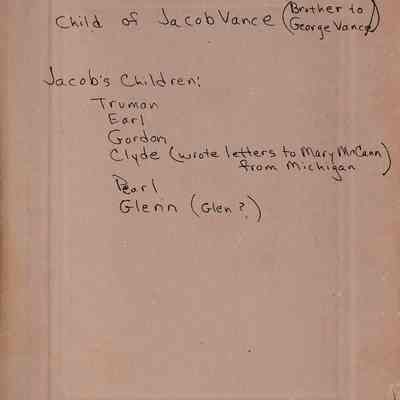 Child of Jacob Vance (Brother to George Vance)
Jacob's Children:
Truman
Earl
Gordon
Clyde (wrote letters to Mary McCann from Michigan)
Pearl
Glenn (Glen?)